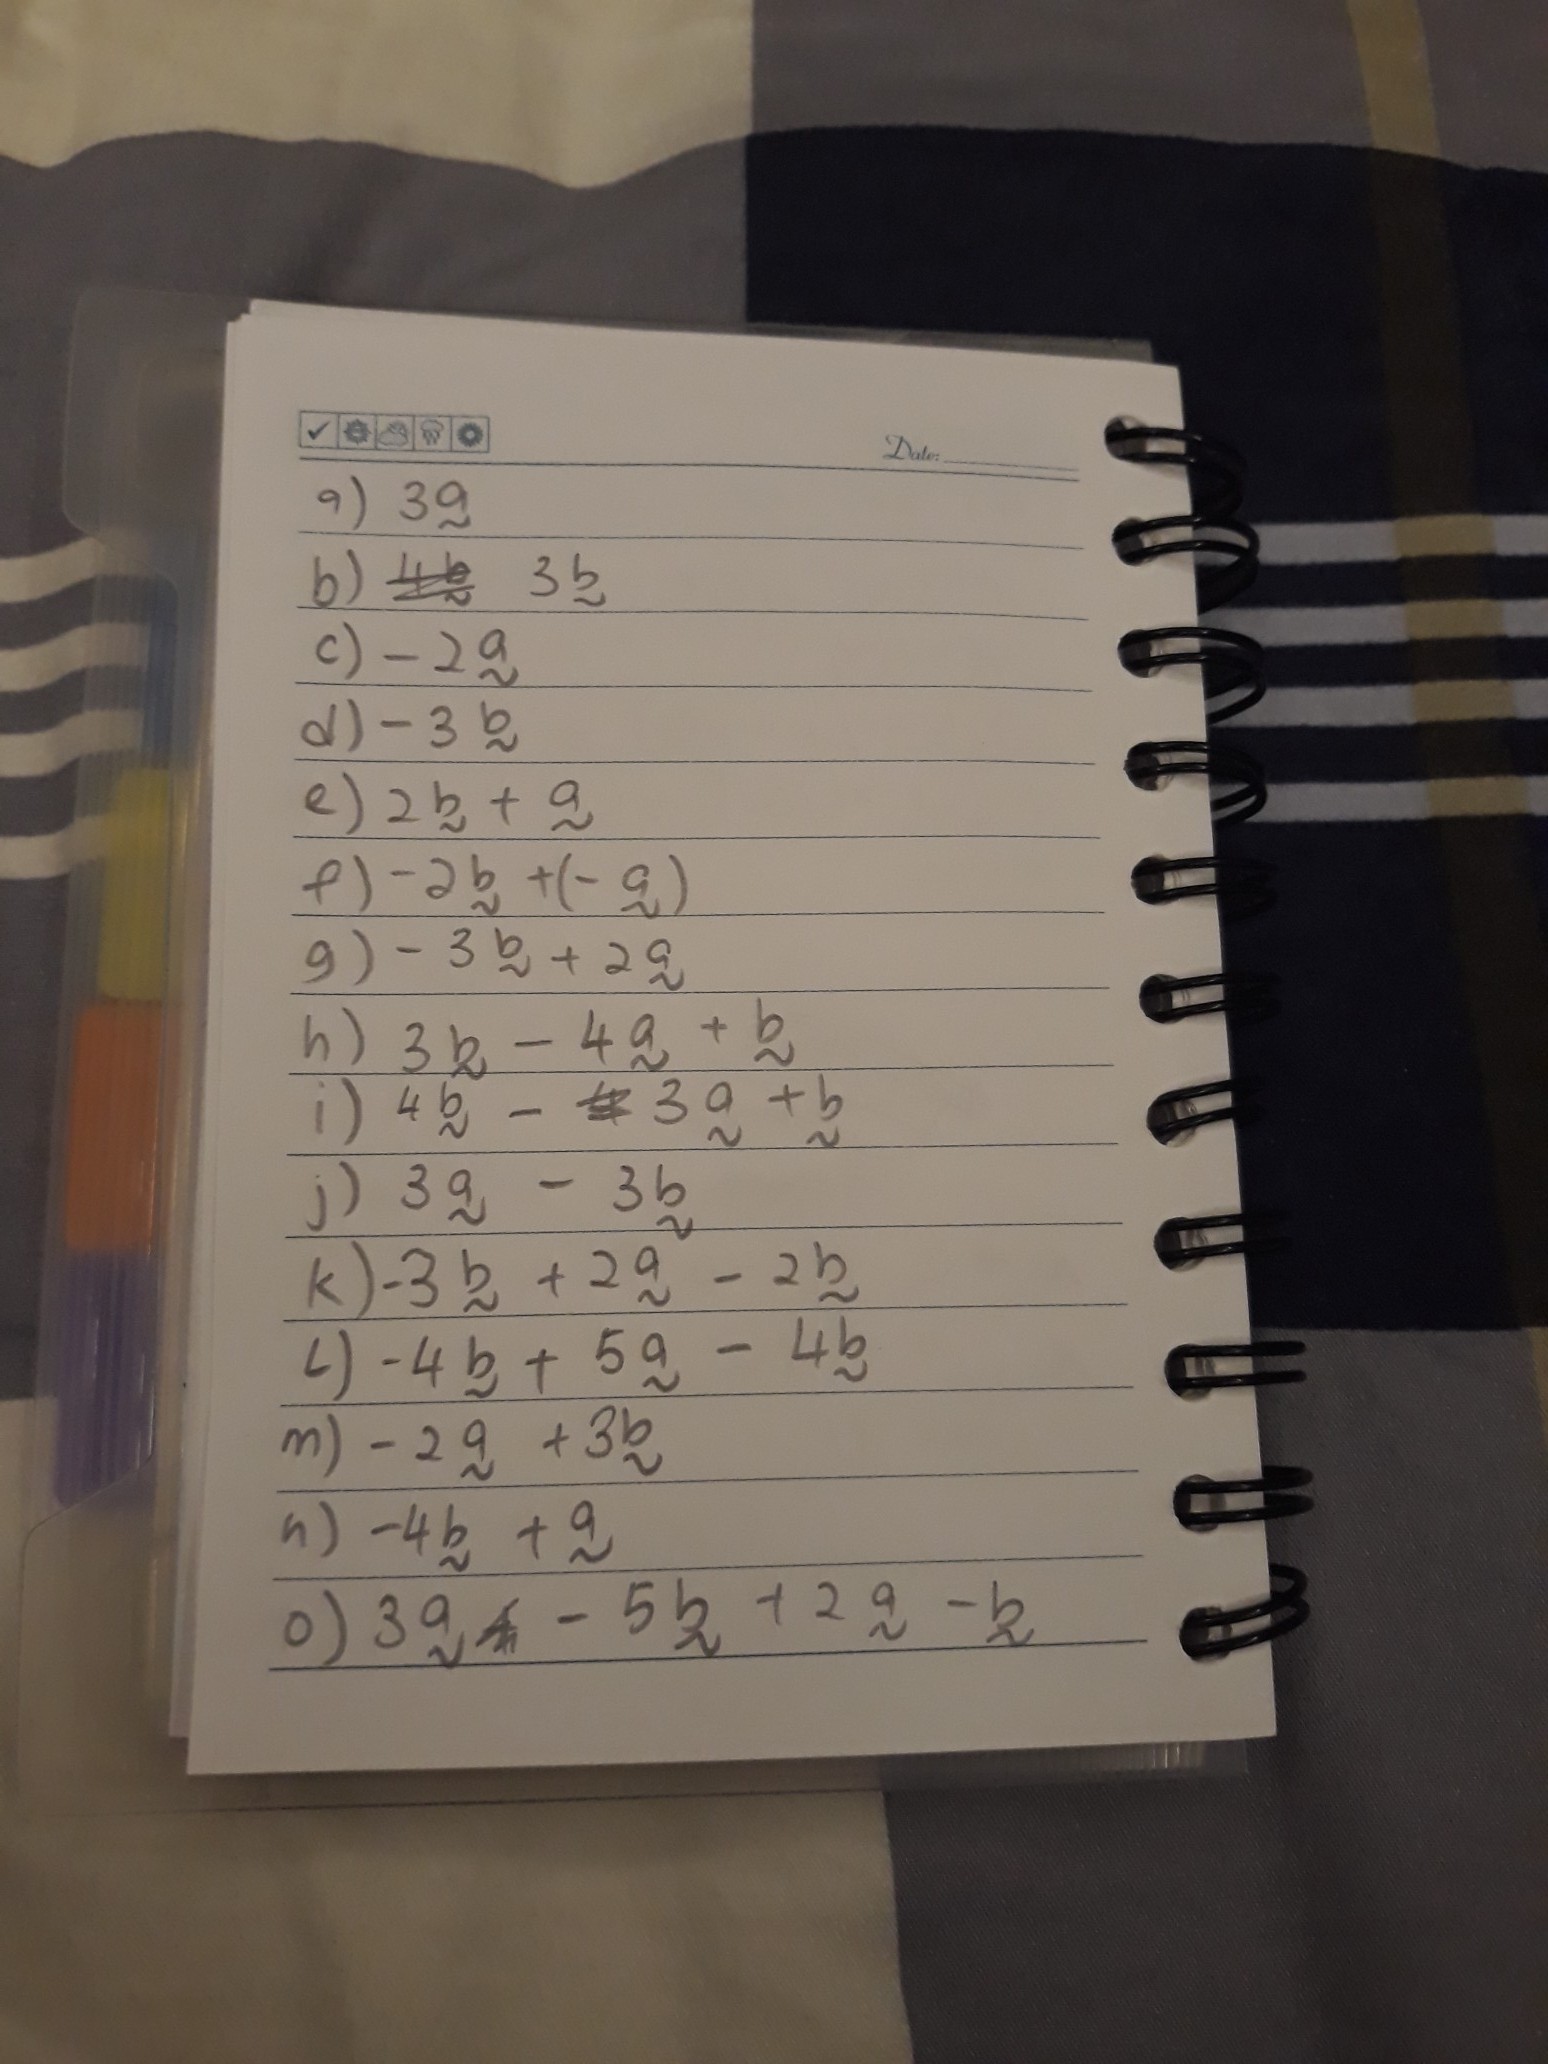 Date:
a) 3a
b) 4b 3b
c) -2a
d) -3b
e) 2b + a
f) -2b +(-a)
g) -3b + 2a
h) 3b - 4a + b
i) 4b - 3a + b
j) 3a - 3b
k) -3b + 2a - 2b
L) -4b + 5a - 4b
m) -2a + 3b
n) -4b + a
o) 3a - 5b + 2a - b